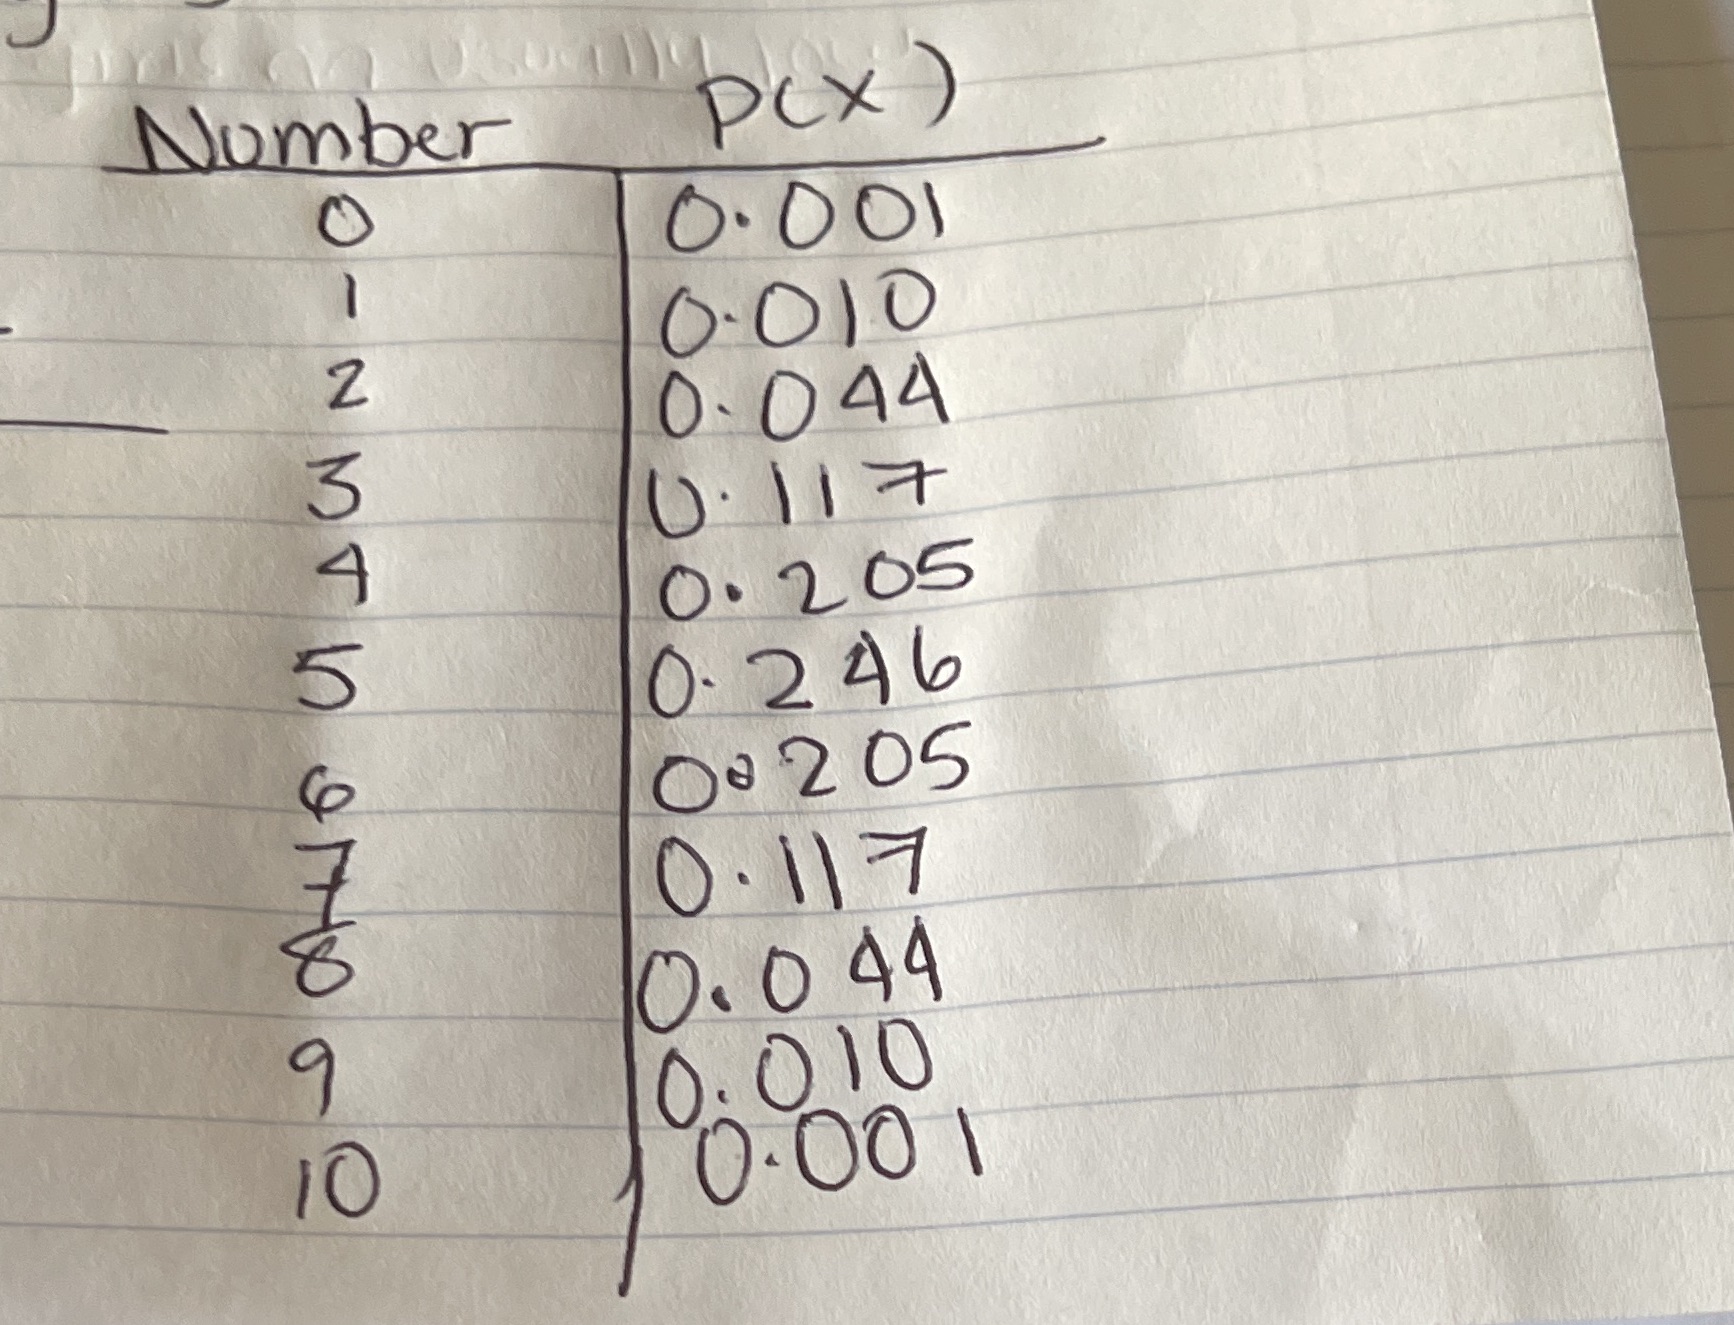 Number P(x)
0 0.001
1 0.010
2 0.044
3 0.117
4 0.205
5 0.246
6 0.205
7 0.117
8 0.044
9 0.010
10 0.001